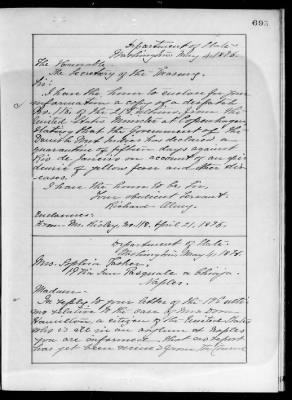 693
Department of State.
Washington May 4, 1895.
The Honorable
The Secretary of the Treasury.
Sir:
I have the honor to enclose for your
information a copy of a despatch
No. 118. of the 21st ultimo, from the
United States Minister at Copenhagen
stating that the Government of the
Danish West Indies has declared
quarantine of fifteen days against
Rio de Janeiro on account of an epi-
demic of yellow fever and other dis-
eases.
I have the honor to be Sir,
Your obedient servant,
Richard Olney.
Enclosures:
From Mr. Risley, No. 118. April 21, 1895.
Department of State.
Washington, May 4, 1895.
Mrs. Sophia
San Pasquale a Chiaja.
Naples.
Madam:
In reply to your letter of the 17th ulti-
mo relative to the case of
Hamilton, a citizen of the United States
who is ill in an asylum at Naples
you are informed that no report
has yet been received from the Consul